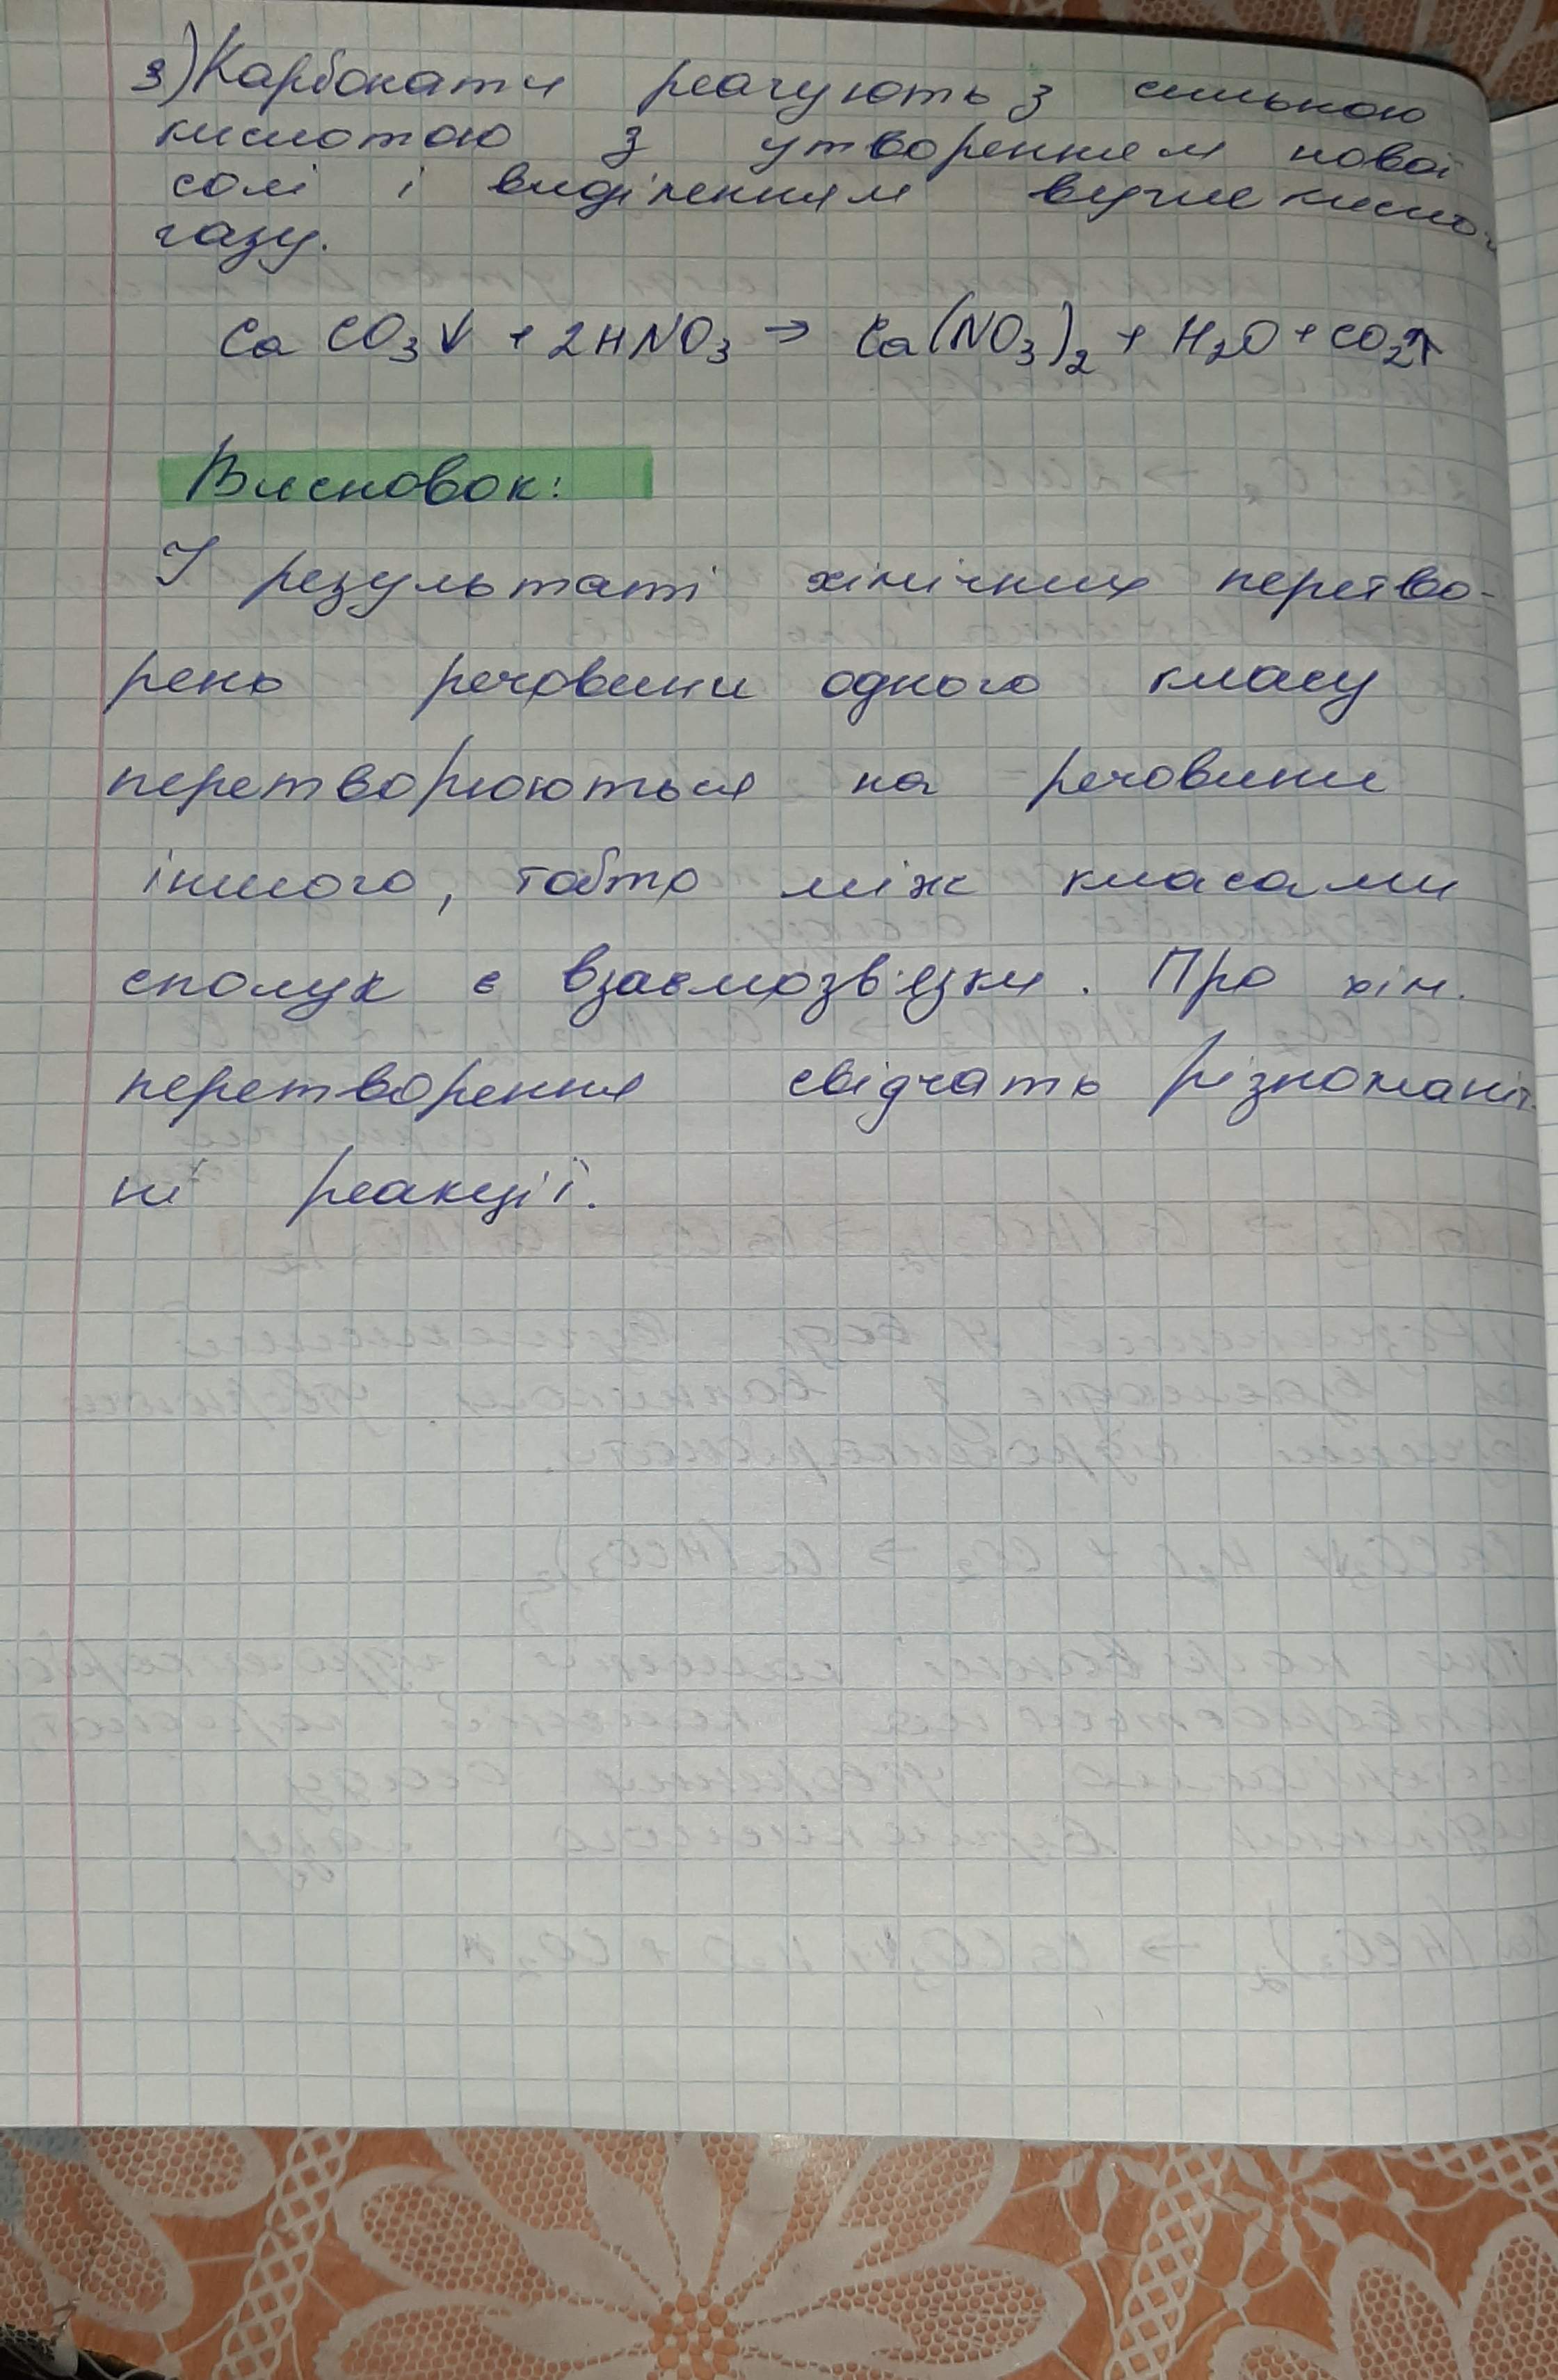 3) Карбонати реагують з сильною
кислотою з утворенням нової
солі і виділенням вуглекисло-
газу.
CaCO₃↓ + 2HNO₃ → Ca(NO₃)₂ + H₂O + CO₂↑
Висновок:
У результаті хімічних перетво-
рень речовини одного класу
перетворюються на речовини
іншого, тобто між класами
сполук є взаємозв'язки. Про хім.
перетворення свідчать різноманіт-
ні реакції.